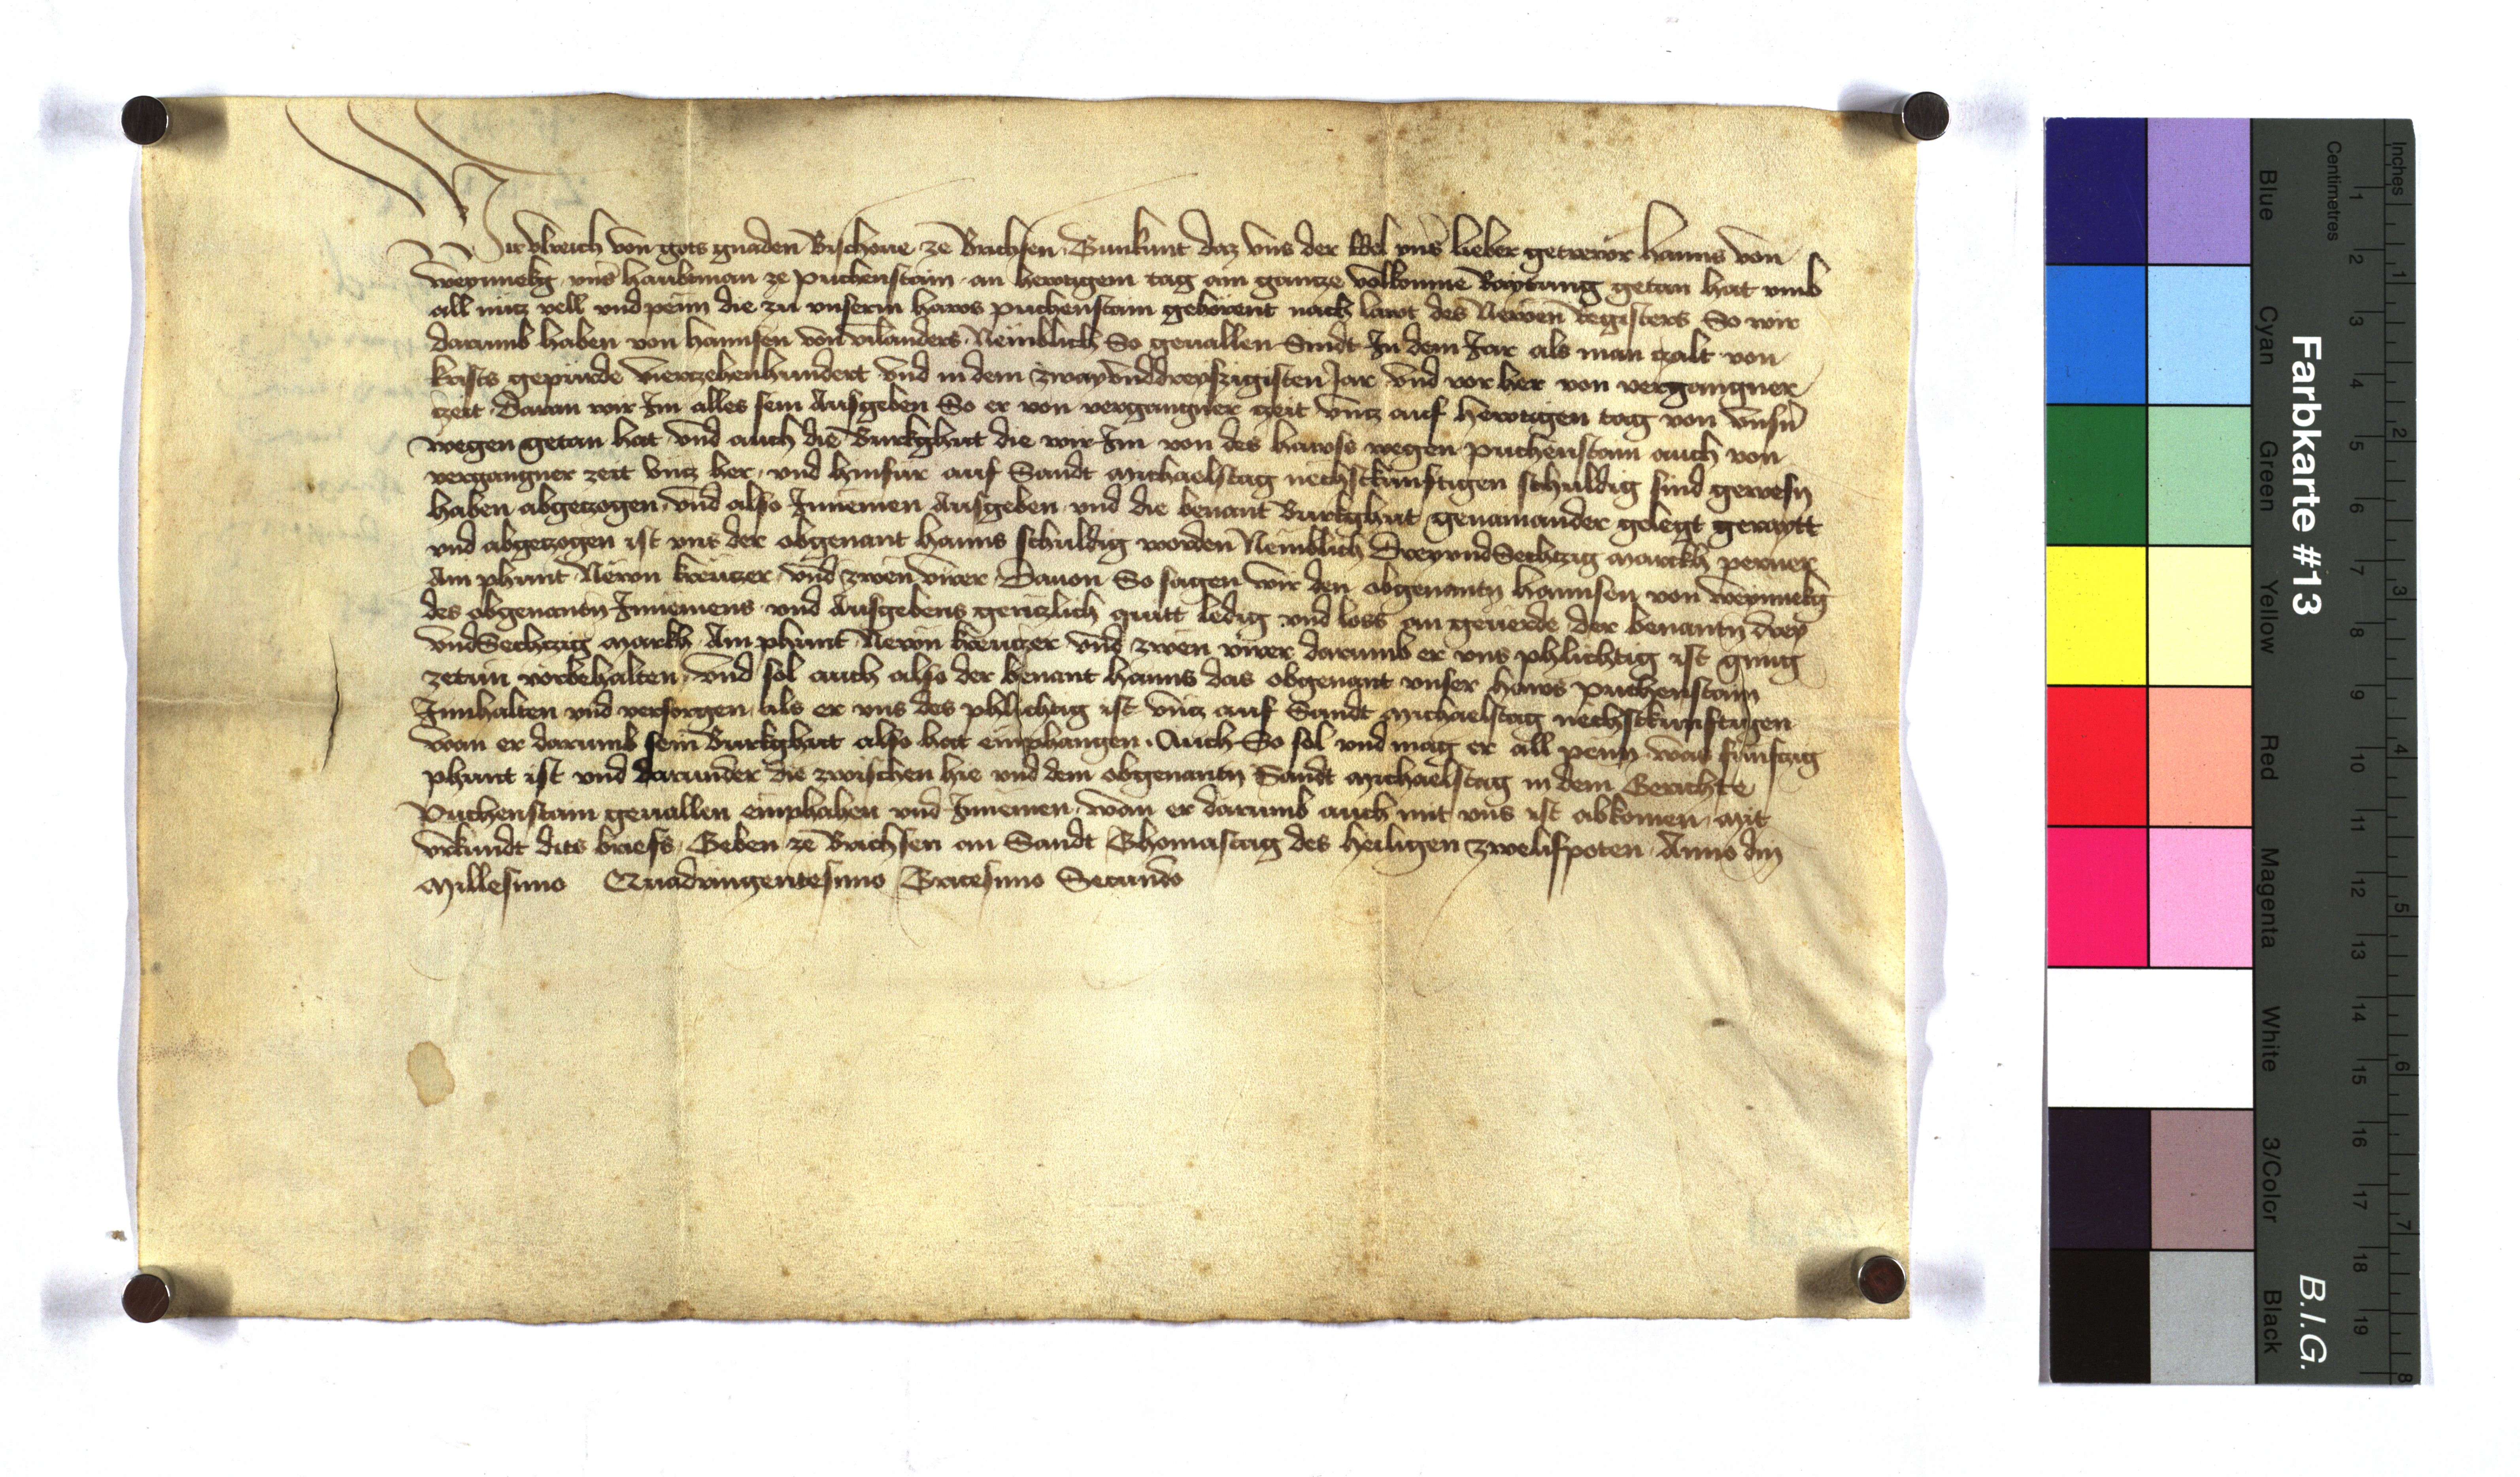 Wir Vlreich von gots gnaden Bischoue ze Brichsen Tun kunt daz vns der Edel vns̄ lieber getrewr Hanns von
weynnekg vns̄ haubtman ze puchenstain an hewtigem tag ain gantze volkomne Raytung getan hat vmb
all nütz vell vnd penn die zu vnserm haws puchenstain gehörent nach lawt des Newen Registers So wir
darumb haben von hannsen von vilanders Nemblich So geuallen Sindt In dem Jar als man tzalt von
krists gepürde viertzehenhundert vnd in dem zwayvnddreyszigisten Jar vnd vor her von vergangner
tzeit Daran wir Im alles sein Ausgeben So er von vergangner tzeit vntz auf hewtigen tag von vnsn̄
wegen getan hat vnd auch die Burkghut die wir Im von des hawss wegen puchenstain auch von
vergangner zeit vntz her vnd hinfür auf Sandt Michaelstag nechstkunftigen schuldig sind gewesn
haben abgetzogen vnd also Innemen Ausgeben vnd die benant Burkghut genainander gelegt geraytt
vnd abgetzogen ist vns der obgenant hanns schuldig worden Nemblich DreyvndSechtzig marckh perner
Ain phunt Newn kreutzer vnd zwen virer Dauon So sagen wir den obgenantn hannsen von weynnekg
des obgenantn Innemens vnd Ausgebens gentzlich quitt ledig vnd loss an geuerde Der benantn drey
vndSechtzig markh Ain phunt Newn kreutzer vnd zwen virer darumb er vns phlichtig ist gnug
zetun vorbehalten vnd sol auch also der benant hanns das obgenant vnser haws puchenstain
Innhalten vnd versorgen als er vns des phlichtig ist vntz auf Sandt Michaelstag nechstkunftigen
wan er darumb sein Burkghut also hat emphangen Auch So sol vnd mag er all penn was funftzig
phunt ist vnd darunder die zwischen hie vnd dem obgenantn Sandt Michaelstag in dem Gerichte
Puchenstain geuallen emphahen vnd Innemen wan er darumb auch mit vns ist abkomen Mit
vrkundt dits briefs Geben ze Brichsen an Sandt Thomastag des heiligen zwelifpoten Anno dn̄i
Millesimo Quadringentesimo Tricesimo Secundo
Farbkarte #13
B.I.G.
Blue
Cyan
Green
Yellow
Red
Magenta
White
3/Color
Black
Centimetres
Inches
1
2
3
4
5
6
7
8
9
10
11
12
13
14
15
16
17
18
19
1
2
3
4
5
6
7
8